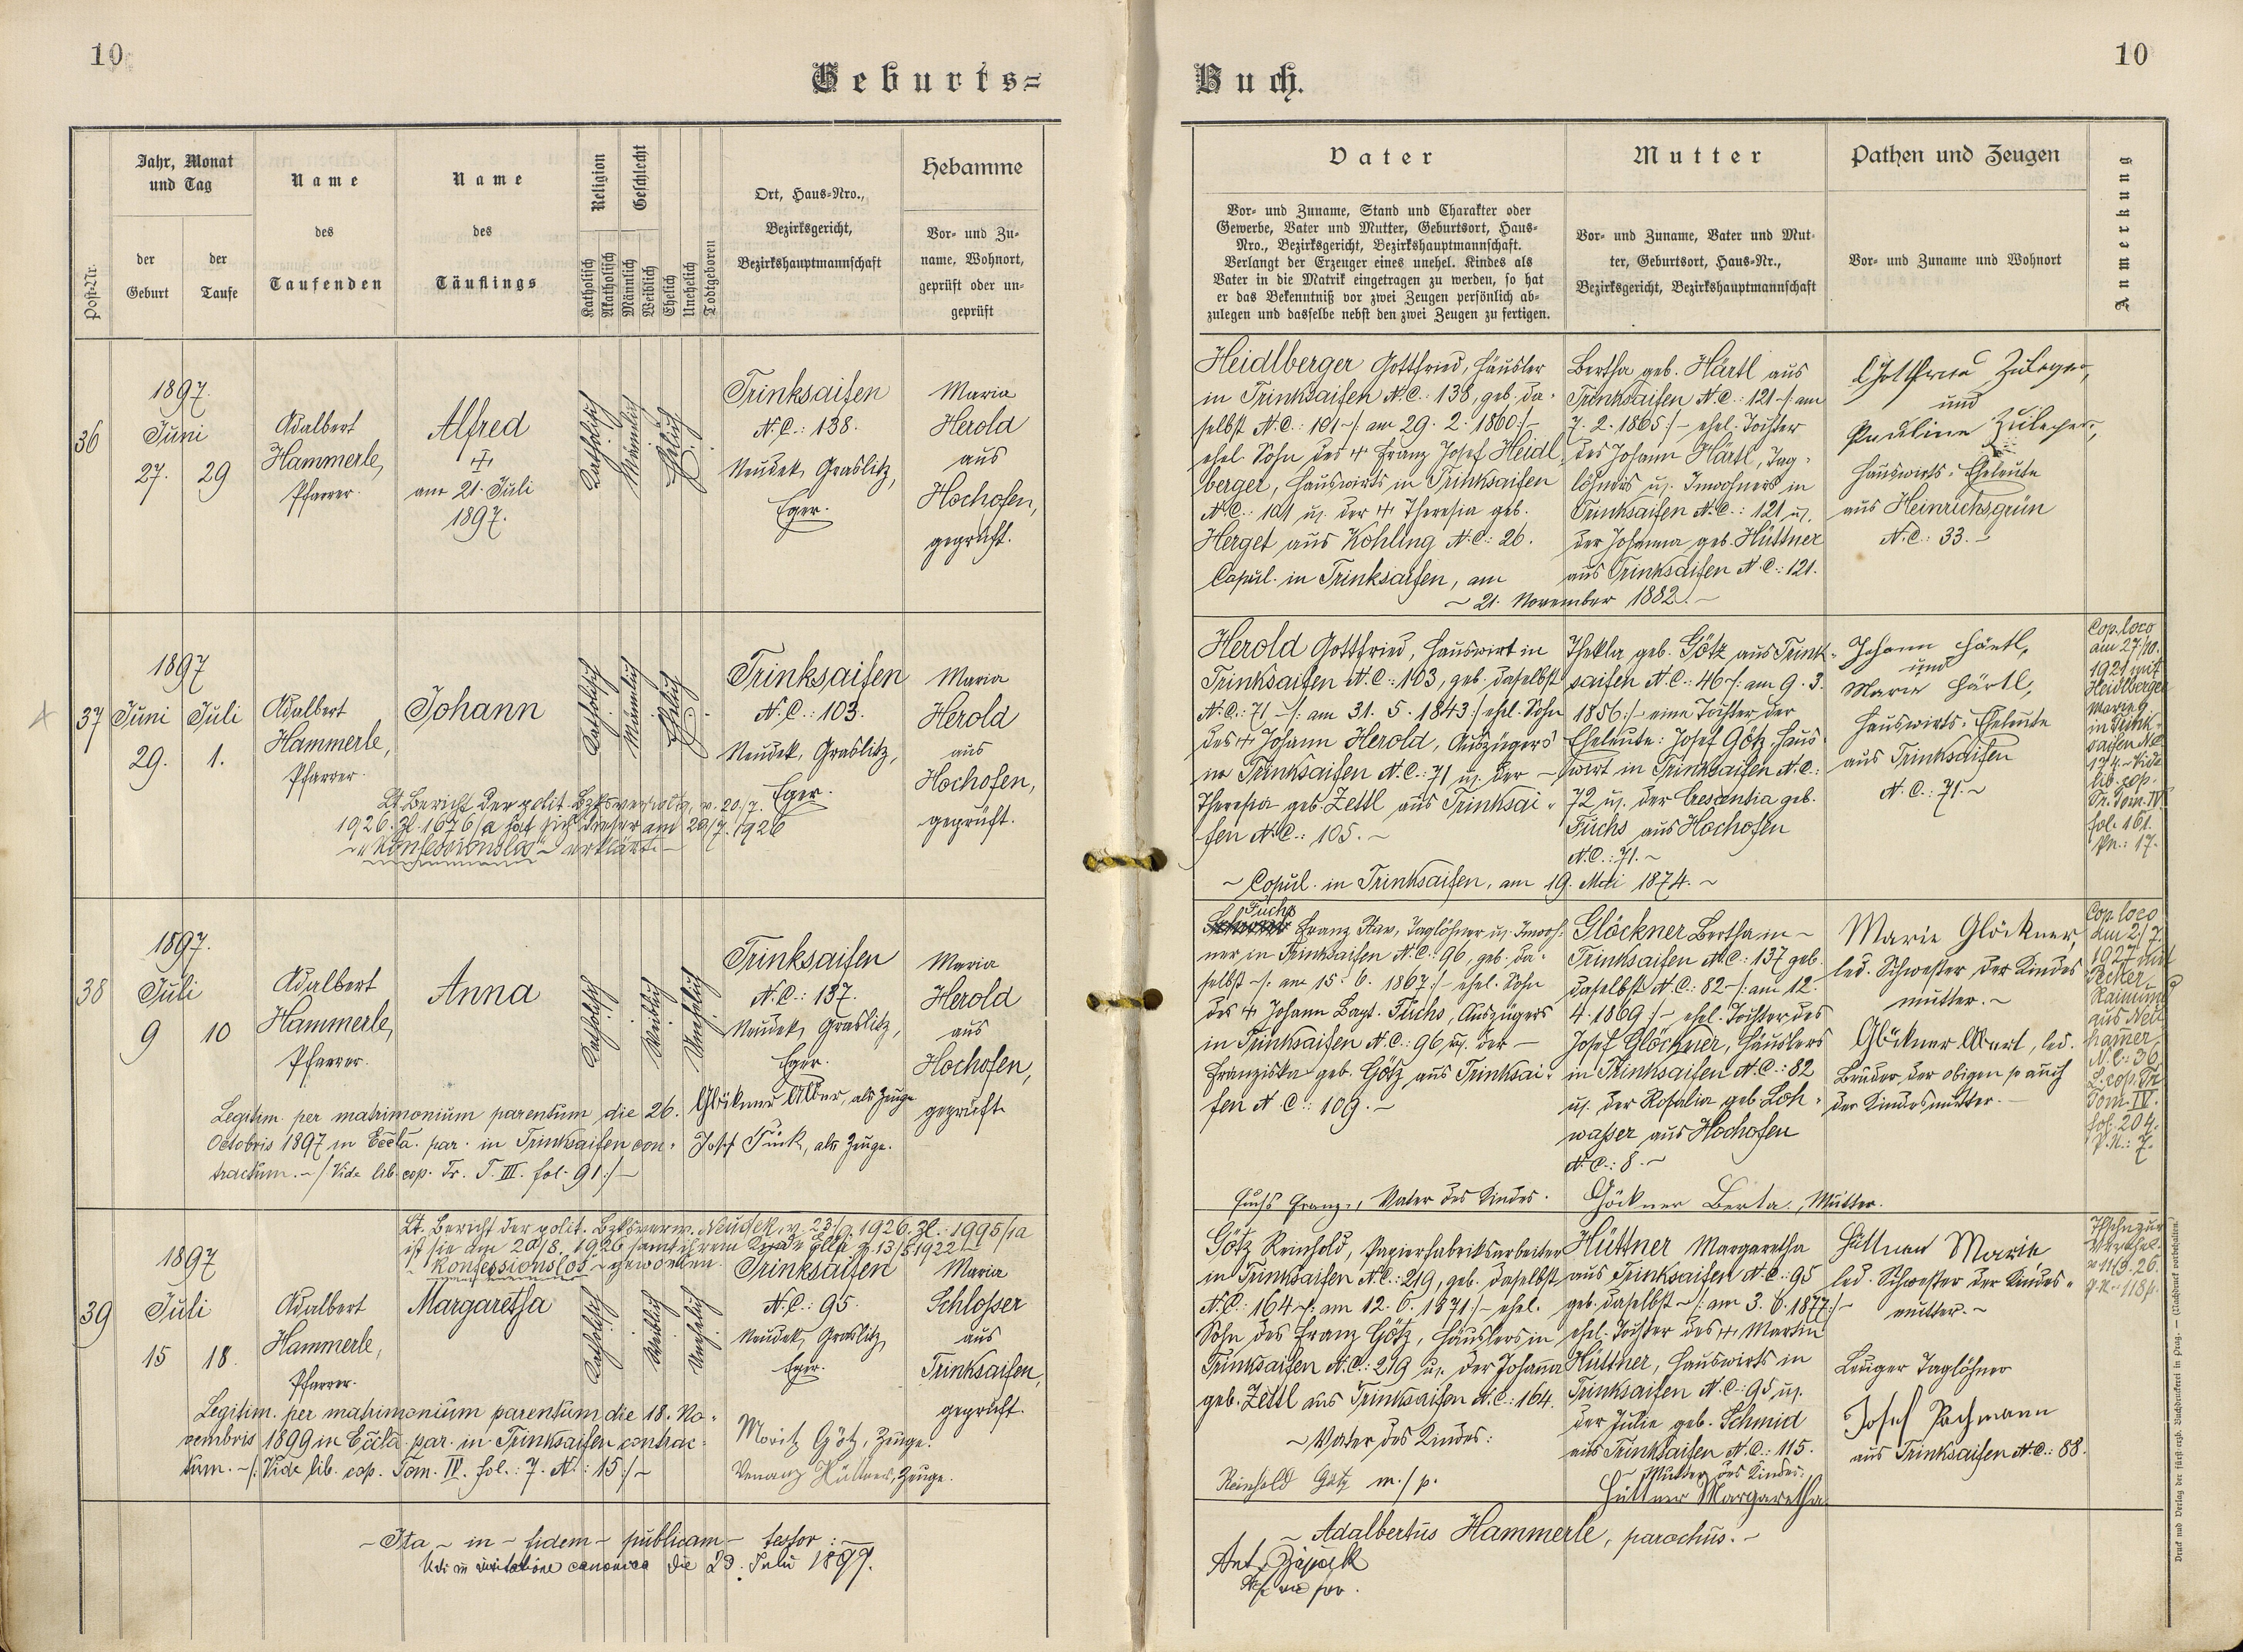 10
10
Geburts=
Buch.
Post-Nr.
Jahr, Monat
und Tag
der
Geburt
der
Taufe
Name
des
Taufenden
Name
des
Täuflings
Religion
Katholisch
Akatholisch
Geschlecht
Männlich
Weiblich
Ehelich
Unehelich
Todtgeboren
Ort, Haus=Nro.,
Bezirksgericht,
Bezirkshauptmannschaft
Hebamme
Vor= und Zu=
name, Wohnort,
geprüft oder un=
geprüft
Vater
Vor= und Zuname, Stand und Charakter oder
Gewerbe, Vater und Mutter, Geburtsort, Haus=
Nro., Bezirksgericht, Bezirkshauptmannschaft.
Verlangt der Erzeuger eines unehel. Kindes als
Vater in die Matrik eingetragen zu werden, so hat
er das Bekenntniß vor zwei Zeugen persönlich ab=
zulegen und dasselbe nebst den zwei Zeugen zu fertigen.
Mutter
Vor= und Zuname, Vater und Mut=
ter, Geburtsort, Haus=Nr.,
Bezirksgericht, Bezirkshauptmannschaft
Pathen und Zeugen
Vor= und Zuname und Wohnort
Anmerkung
36
1897.
Juni
27. 29
Adalbert
Hammerle,
Pfarrer.
Alfred
am 21. Juli
1897.
Katholisch
Männlich
Ehelich
Trinksaifen
N.C.: 138.
Neudek, Graslitz,
Eger.
Maria
Herold
aus
Hochofen,
geprüft.
Heidlberger Gottfried, Häusler
in Trinksaifen N.C.: 138, geb. da=
selbst N.C.: 101 -/: am 29. 2. 1860 :/-
ehel. Sohn des + Franz Josef Heidl=
berger, Hauswirts in Trinksaifen
N.C.: 101 u. der + Theresia geb.
Herget aus Kohling N.C.: 26.
Copul. in Trinksaifen, am
~ 21. November 1882. ~
Bertha geb. Härtl aus
Trinksaifen N.C.: 121 -/: am
7. 2. 1865 :/- ehel. Tochter
des Johann Härtl, Tag=
löhners u. Inwohners in
Trinksaifen N.C.: 121 u.
der Johanna geb. Hüttner
aus Trinksaifen N.C.: 121.
Gottfried Zuleger,
und
Pauline Zuleger,
Hauswirts=Eheleute
aus Heinrichsgrün
N.C.: 33.
37
1897
Juni Juli
29. 1.
Adalbert
Hammerle,
Pfarrer.
Johann
Katholisch
Männlich
Ehelich
Trinksaifen
N.C.: 103.
Neudek, Graslitz,
Eger.
Maria
Herold
aus
Hochofen,
geprüft.
Lt. Bericht der polit. Bzksverwaltg. v. 20/7.
1926. Zl. 1676/a hat sich dieser am 20/7. 1926
~ "konfessionslos" ~ erklärt. -
Herold Gottfried, Hauswirt in
Trinksaifen N.C.: 103, geb. daselbst
N.C.: 71 -/: am 31. 5. 1843 :/ ehel. Sohn
des + Johann Herold, Auszügers
in Trinksaifen N.C.: 71 u. der -
Theresia geb. Zettl aus Trinksai=
fen N.C.: 105. ~
~ Copul. in Trinksaifen, am 19. Mai 1874. ~
Thekla geb. Götz aus Trink=
saifen N.C.: 46 -/: am 9. 3.
1856 :/- eine Tochter der
Eheleute: Josef Götz, Haus=
wirt in Trinksaifen N.C.:
72 u. der Crescentia geb.
Fuchs aus Hochofen
N.C.: 71. ~
Johann Härtl,
und
Marie Härtl,
Hauswirts=Eheleute
aus Trinksaifen
N.C.: 71. ~
Cop. loco
am 27/10.
1921 mit
Heidlberger
Marie
in Trink=
saifen N.C.
174. ~ Vide
lib. cop.
Tr. Tom. IV
fol. 161.
Pn.: 17.
38
1897.
Juli
9 10
Adalbert
Hammerle,
Pfarrer.
Anna
Katholisch
Weiblich
Unehelich
Trinksaifen
N.C.: 137.
Neudek, Graslitz,
Eger.
Maria
Herold
aus
Hochofen,
geprüft
Legitim. per matrimonium parentum die 26.
Octobris 1897 in Eccla. par. in Trinksaifen con=
tractum. ~ /: Vide lib. cop. Tr. T. III. fol. 91 :/ ~
als Zeuge
Josef Fück, als Zeuge.
Fuchs
Franz Xav., Taglöhner u. Inwoh=
ner in Trinksaifen N.C.: 96, geb. da=
selbst -/: am 15. 6. 1867 :/- ehel. Sohn
des + Johann Bapt. Fuchs, Auszügers
in Trinksaifen N.C.: 96, u. der -
Franziska geb. Götz aus Trinksai=
fen N.C.: 109. ~
Fuchs Franz, Vater des Kindes.
Glöckner Bertha in ~
Trinksaifen N.C.: 137 geb.
daselbst N.C.: 82 -/: am 12.
4. 1869 :/- ehel. Tochter des
Josef Glöckner, Häuslers
in Trinksaifen N.C.: 82
u. der Rosalia geb. Loh=
waßer aus Hochofen
N.C.: 8. ~
Göckner Berta, Mutter.
Marie Glöckner,
led. Schwester der Kindes
mutter. ~
Glöckner Albert, led.
Bruder der obigen so auch
der Kindesmutter. -
Cop. loco
am 2/7.
1927 mit
Raimund
aus Neu
hamer
N.C.: 36.
L. cop. Tr.
Tom. IV.
fol. 204.
P.N.: 7.
39
Lt. Bericht der polit. Bzksverw. Neudek, v. 23/9. 1926. Zl.: 1995/1a
ist sie am 20/8. 1926 samt ihrem
~ konfessionslos ~ geworden.
1897
Juli
15 18.
Adalbert
Hammerle,
Pfarrer.
Margaretha
Katholisch
Weiblich
Unehelich
Trinksaifen
N.C.: 95.
Neudek, Graslitz,
Eger.
Maria
Schlosser
aus
Trinksaifen,
geprüft.
Legitim. per matrimonium parentum die 18. No=
vembris 1899 in Eccla. par. in Trinksaifen contrac=
tum. ~ /: Vide lib. cop. Tom. IV. fol.: 7. N.: 15 :/ ~
Moritz Götz, Zeuge.
Venanz Hüttner, Zeuge.
Götz Reinhold, Papierfabriksarbeiter
in Trinksaifen N.C.: 219, geb. daselbst
N.C.: 164 -/: am 12. 6. 1871 :/- ehel.
Sohn des Franz Götz, Häuslers in
Trinksaifen N.C.: 219 u. der Johanna
geb. Zettl aus Trinksaifen N.C.: 164.
~ Vater des Kindes:
Reinhold Götz m./p.
Hüttner Margaretha
aus Trinksaifen N.C.: 95
geb. daselbst ~ /: am 3. 6. 1877 :/-
ehel. Tochter des + Martin
Hüttner, Hauswirts in
Trinksaifen N.C.: 95 u.
der Julie geb. Schmid
aus Trinksaifen N.C.: 115.
Mutter des Kindes:
Hüttner Margaretha
Hüttner Marie
led. Schwester der Kindes=
mutter. ~
Taglöhner
Josef Pachmann
aus Trinksaifen N.C.: 88.
~ Ita ~ in ~ fidem ~ publicam ~ testor : ~
~ Adalbertus Hammerle, parochus. ~
Vidi in visitatione canonica die 23. Julii 1897.
Druck und Verlag der fürst-erzb. Buchdruckerei in Prag. — (Nachdruck vorbehalten.)